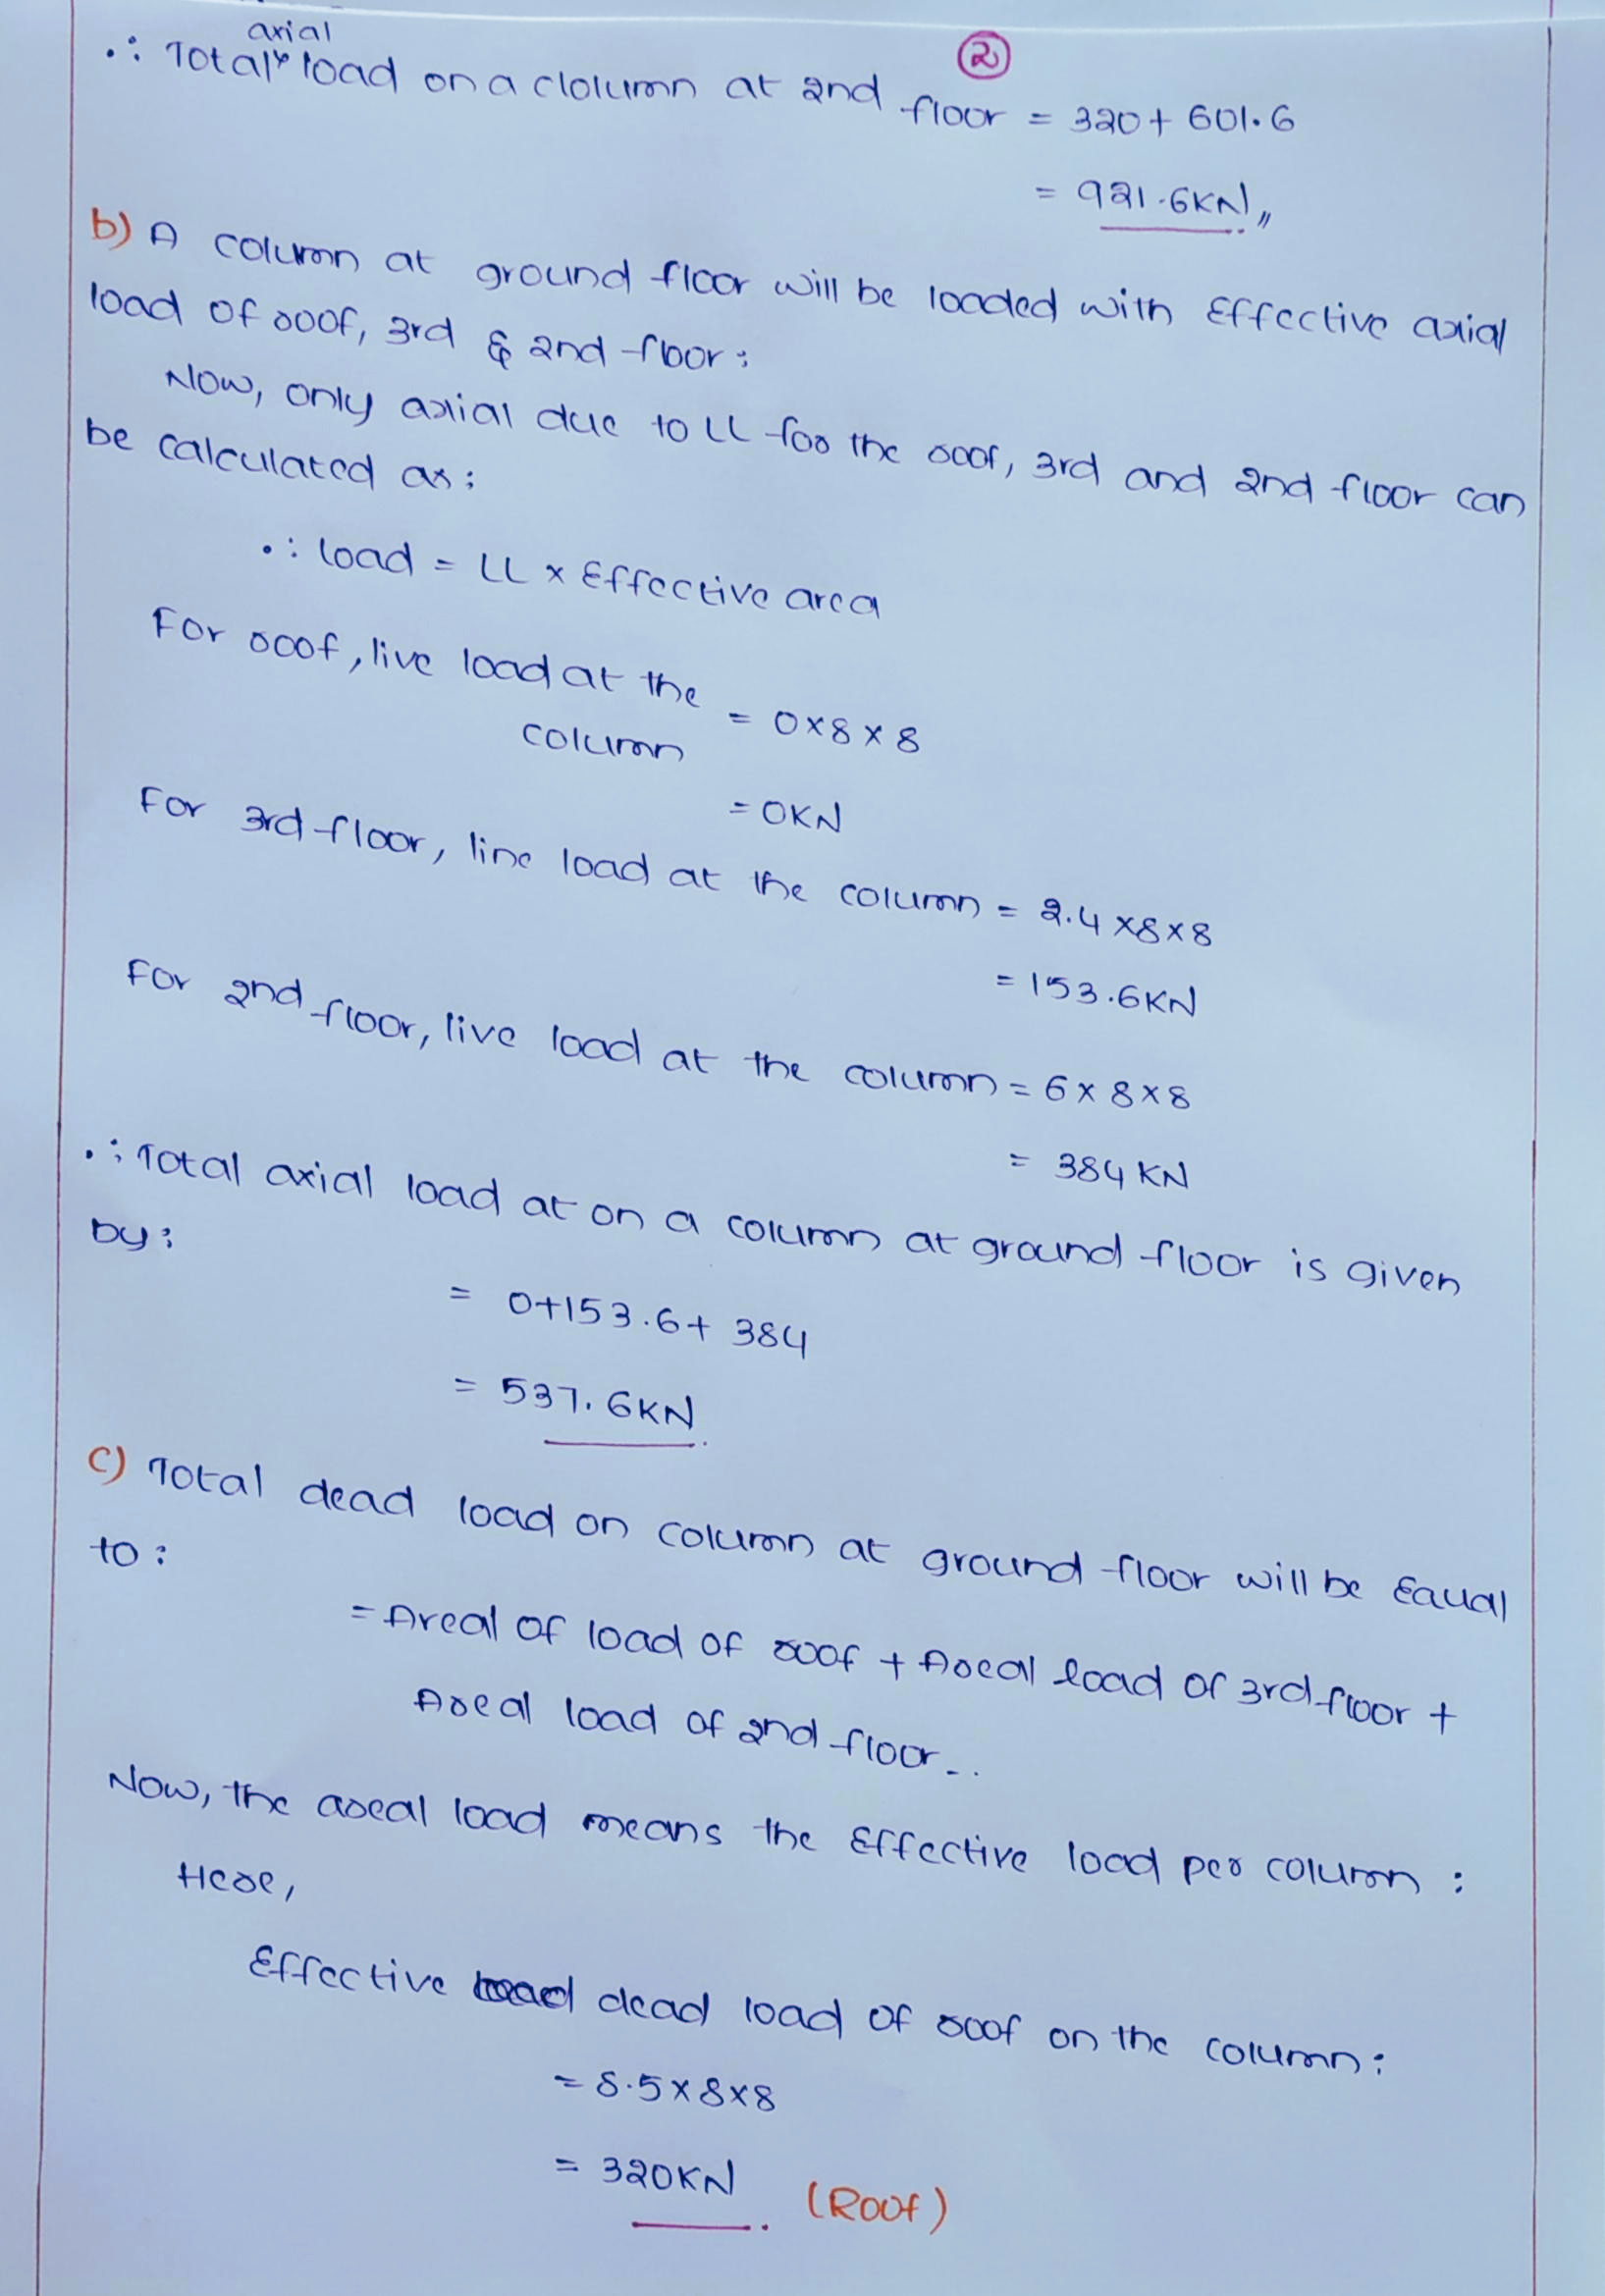 ②
axial
∴ Total load on a clolumn at 2nd floor = 320 + 601.6
= 921.6KN,,
b) A column at ground floor will be loaded with Effective axial
load of roof, 3rd & 2nd floor:
Now, only axial due to LL for the roof, 3rd and 2nd floor can
be calculated as:
∴ load = LL × Effective area
For roof, live load at the
column = 0×8×8
= 0KN
For 3rd floor, line load at the column = 2.4 ×8×8
= 153.6KN
For 2nd floor, live load at the column = 6 × 8×8
= 384 KN
∴ Total axial load at on a column at ground floor is given
by:
= 0+153.6+ 384
= 537.6KN.
c) Total dead load on column at ground floor will be Equal
to:
= Areal of load of roof + Areal load of 3rd floor +
Areal load of 2nd floor..
Now, the areal load means the Effective load per column:
Here,
Effective dead load of roof on the column:
= 8.5×8×8
= 320KN. (Roof)